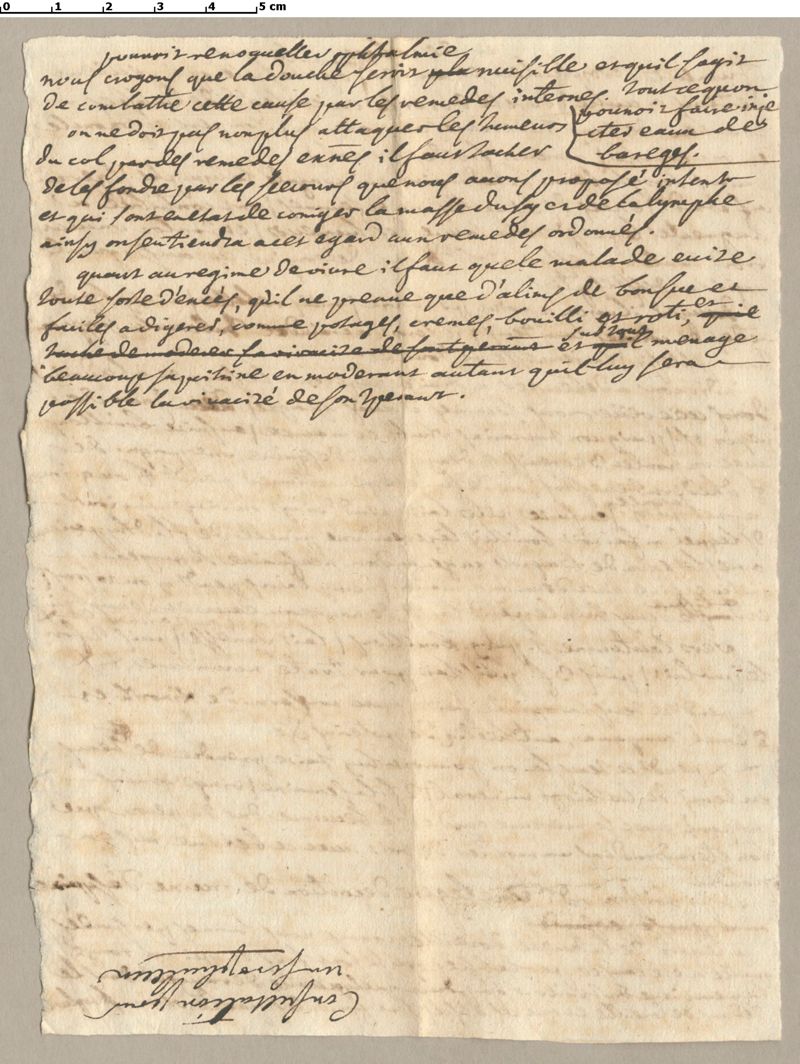 0 1 2 3 4 5 cm
pouroit renouveller ophtalmie
nous croyons que la douche seroit plu nuisible et quil sagit
de combattre cette cause par les remedes internes. tout ce quon
pouroit faire inje
on ne doit pas non plus attaquer les tumeurs
cter eaux de
du col par des remedes exnes il faut tacher
bareges.
de les fondre par les secours que nous avons proposé intente
et qui sont en etat de coriger la masse du sg et de la lymphe
ainsy on sen tiendra a cet egard aux remedes ordonnés.
quant au regime de vivre il faut que le malade evite
toute sorte d'excès, qu'il ne prenne que d'alims de bon suc et
faciles a digerer, comme potages, cremes, bouilli et roti, et
sur tout
tache de moderer la vivacite de son tperamt et qu'il menage
beaucoup sa poitrine en moderant autant quil luy sera
possible la vivacité de son tperamt.
Consultation pour
un scrophuleux